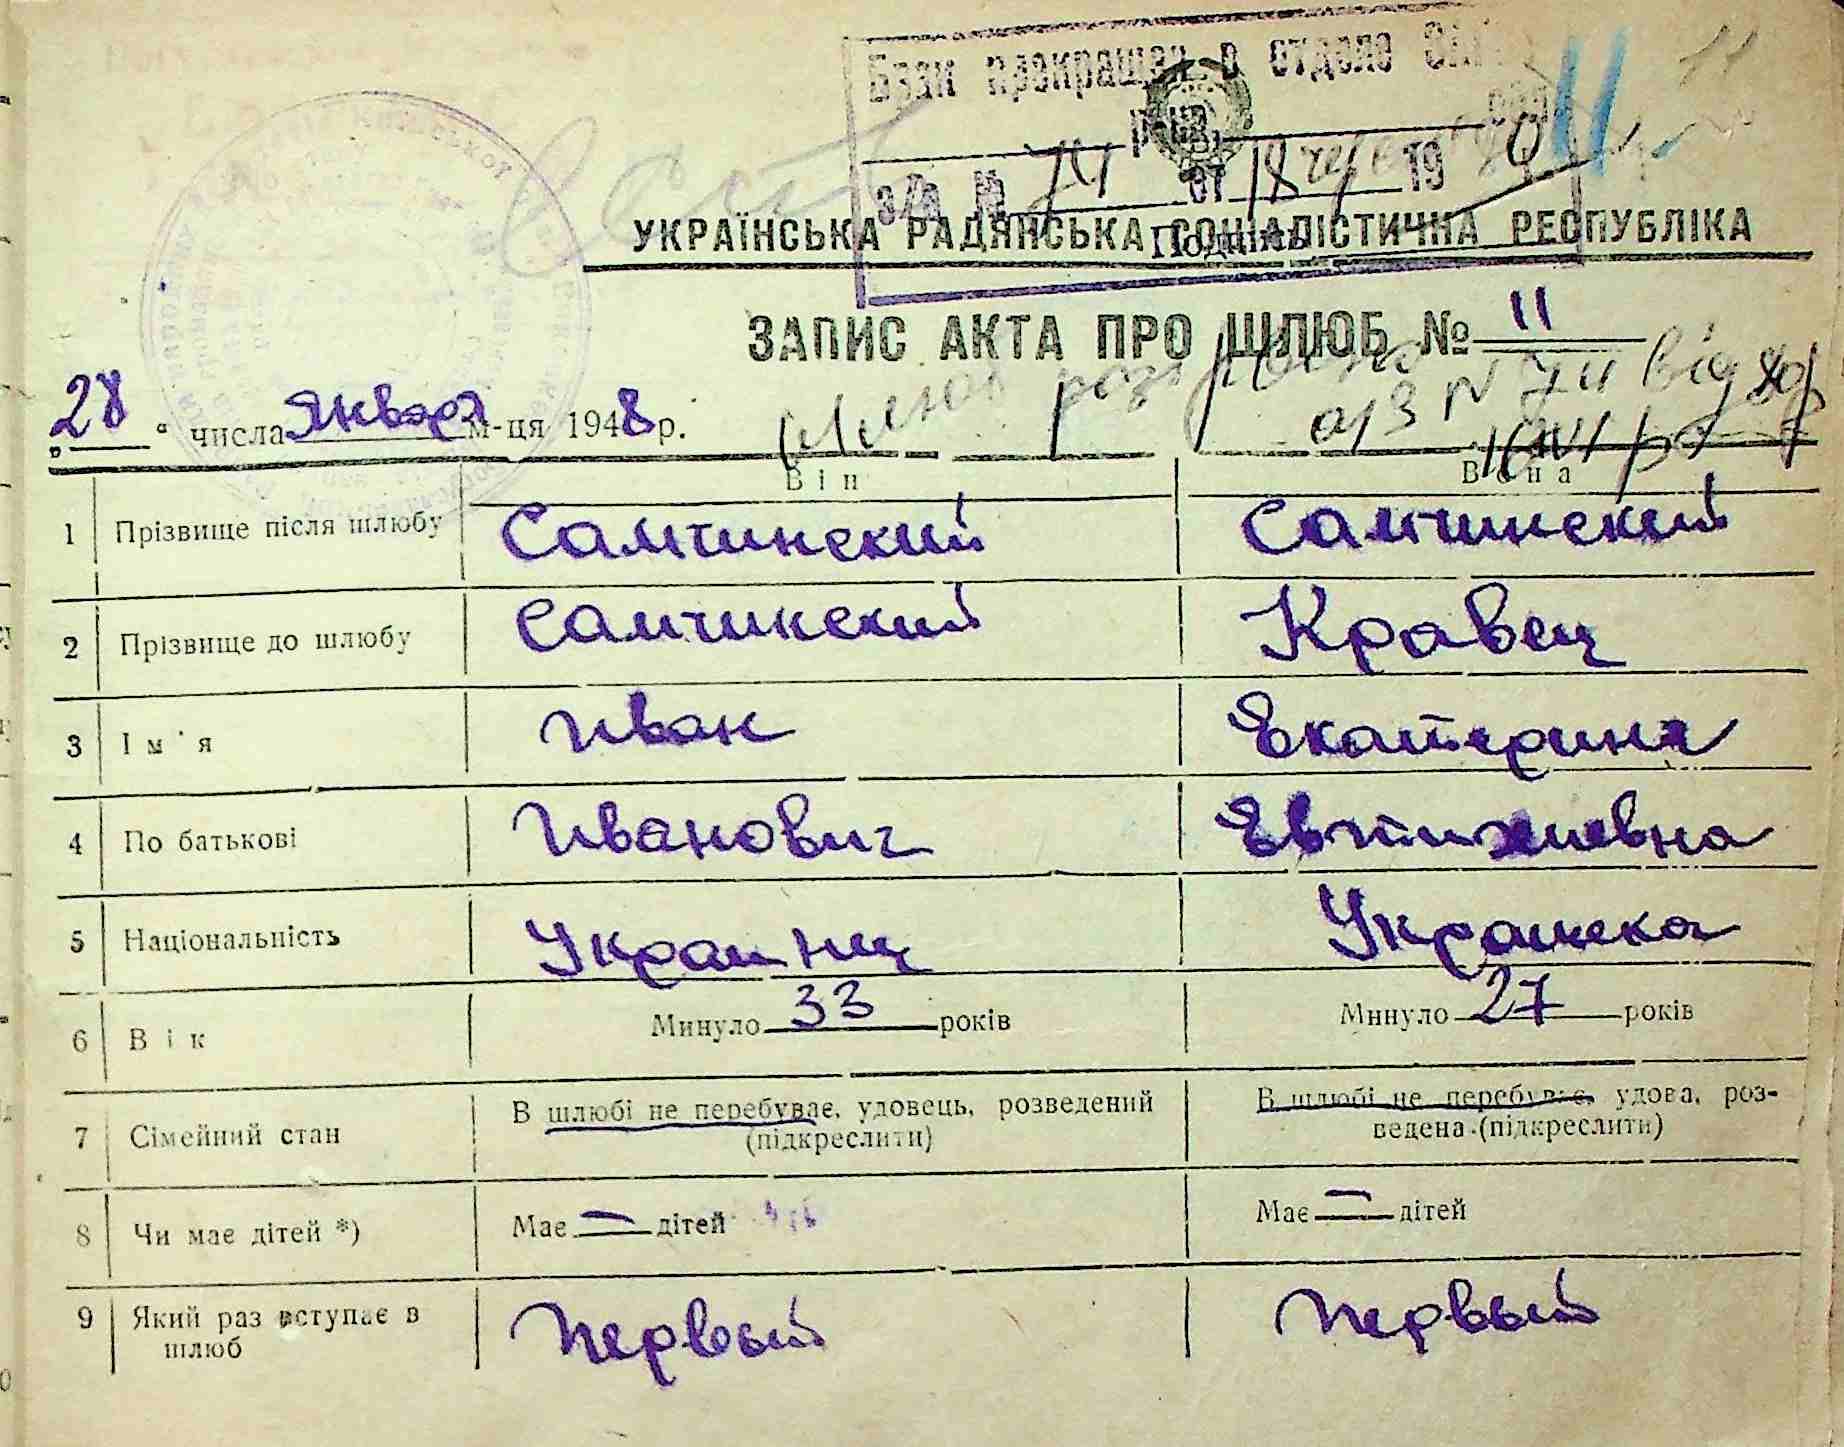 Брак прекращен в отделе
р-на,
з/а № 74 от 18 19
Підпись
11
УКРАЇНСЬКА РАДЯНСЬКА СОЦІАЛІСТИЧНА РЕСПУБЛІКА
ЗАПИС АКТА ПРО ШЛЮБ № 11
Шлюб розірвано
а/з N 74 від
„28“ числа Января м-ця 1948 р.
Він Вона
1 Прізвище після шлюбу Самчинский Самчинский
2 Прізвище до шлюбу Самчинский Кравец
3 Ім'я Иван Екатерина
4 По батькові Иванович Евтихиевна
5 Національність Украинец Украинска
6 Вік Минуло 33 років Минуло 27 років
7 Сімейний стан В шлюбі не перебуває, удовець, розведений (підкреслити) В шлюбі не перебуває, удова, розведена (підкреслити)
8 Чи має дітей *) Має — дітей Має — дітей
9 Який раз вступає в шлюб Первый Первый